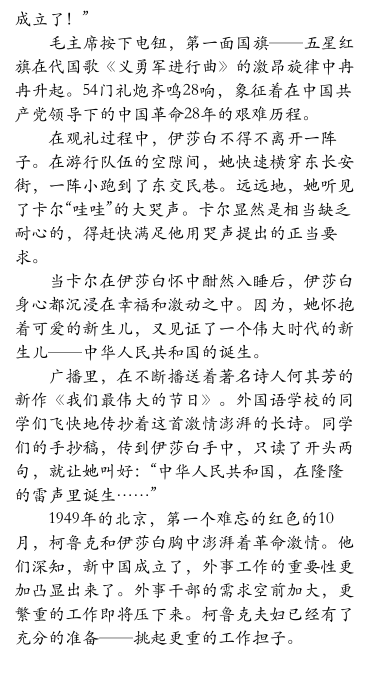 成立了！”
毛主席按下电钮，第一面国旗——五星红
旗在代国歌《义勇军进行曲》的激昂旋律中冉
冉升起。54门礼炮齐鸣28响，象征着在中国共
产党领导下的中国革命28年的艰难历程。
在观礼过程中，伊莎白不得不离开一阵
子。在游行队伍的空隙间，她快速横穿东长安
街，一阵小跑到了东交民巷。远远地，她听见
了卡尔“哇哇”的大哭声。卡尔显然是相当缺乏
耐心的，得赶快满足他用哭声提出的正当要
求。
当卡尔在伊莎白怀中酣然入睡后，伊莎白
身心都沉浸在幸福和激动之中。因为，她怀抱
着可爱的新生儿，又见证了一个伟大时代的新
生儿——中华人民共和国的诞生。
广播里，在不断播送着著名诗人何其芳的
新作《我们最伟大的节日》。外国语学校的同
学们飞快地传抄着这首激情澎湃的长诗。同学
们的手抄稿，传到伊莎白手中，只读了开头两
句，就让她叫好：“中华人民共和国，在隆隆
的雷声里诞生……”
1949年的北京，第一个难忘的红色的10
月，柯鲁克和伊莎白胸中澎湃着革命激情。他
们深知，新中国成立了，外事工作的重要性更
加凸显出来了。外事干部的需求空前加大，更
繁重的工作即将压下来。柯鲁克夫妇已经有了
充分的准备——挑起更重的工作担子。